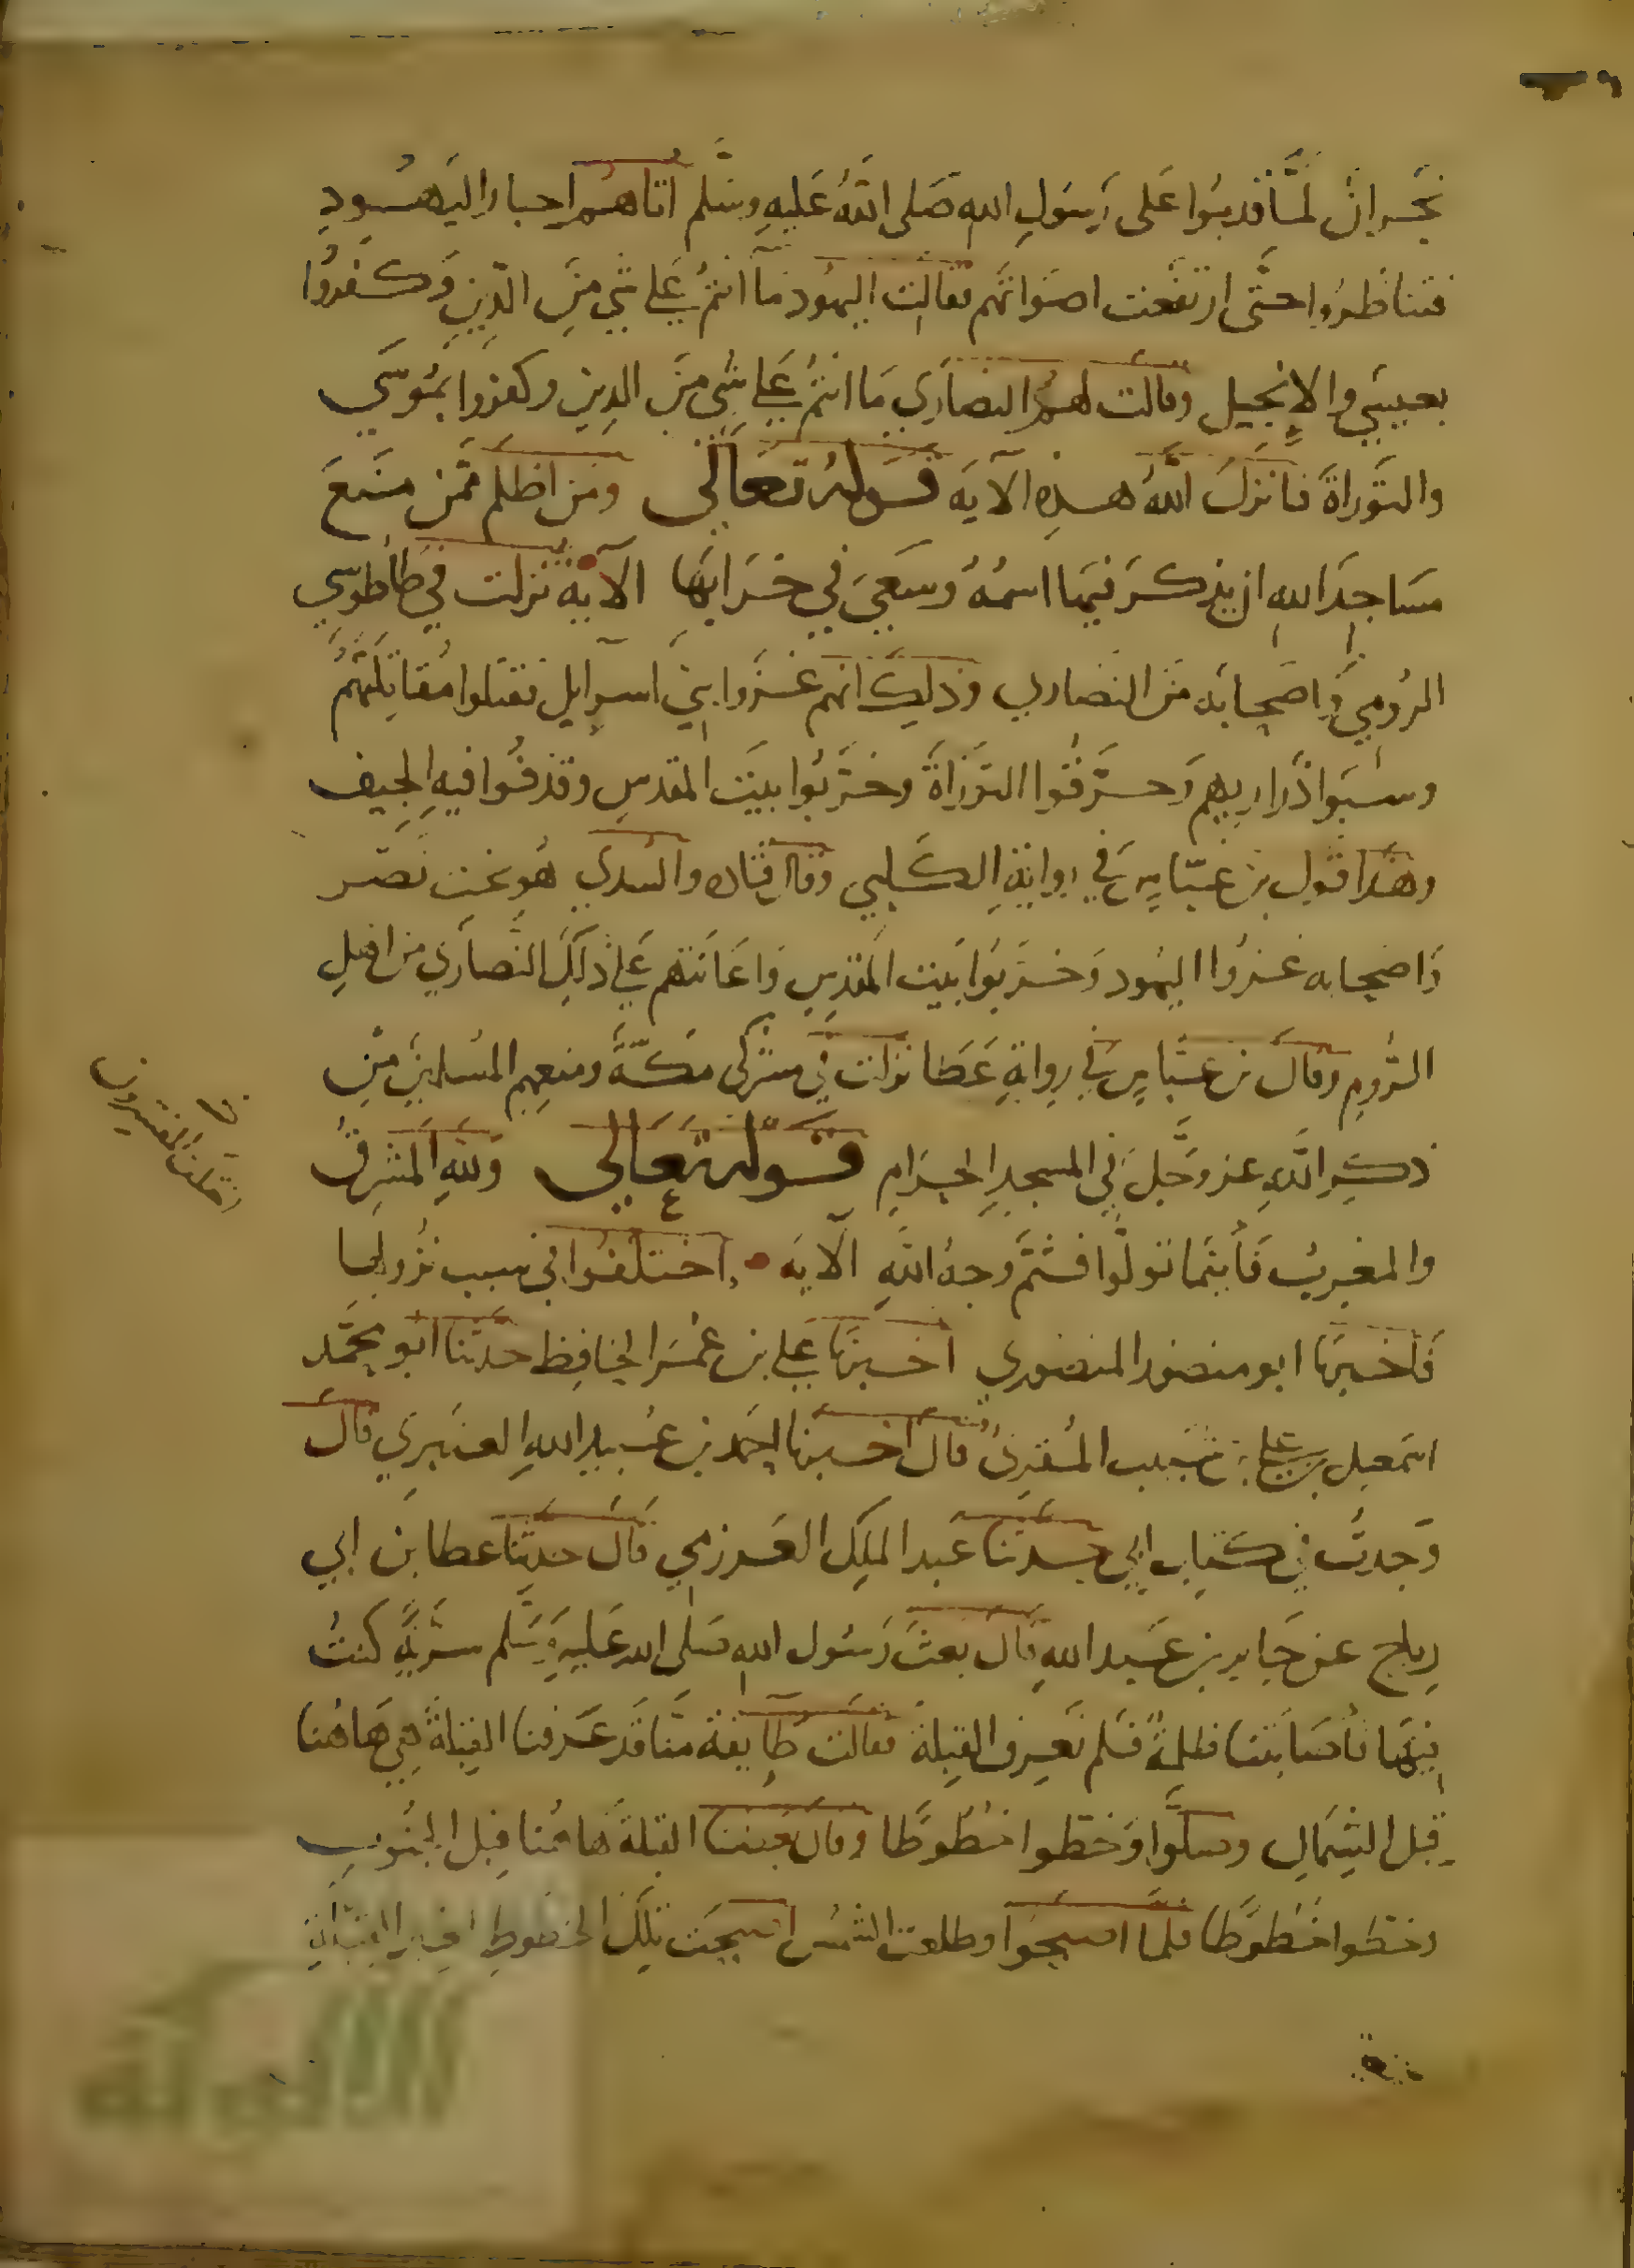 نجران لما قدموا على رسول الله صلى الله عليه وسلم اتاهم احبار اليهود
فتناظروا حتى ارتفعت اصواتهم فقالت اليهود ما انتم على شي من الدين وكفروا
بعيسى والانجيل وقالت لهم النصاري ما انتم على شي من الدين وكفروا بموسى
والتوراة فانزل الله هذه الآية قوله تعالى ومن اظلم ممن منع
مساجد الله ان يذكر فيها اسمه وسعى في خرابها الآية نزلت في ططوس
الرومي واصحابه من النصاري وذلك انهم غزوا بني اسرايل فقتلوا مقاتلتهم
وسبوا ذراريهم وحرقوا التوراة وخربوا بيت المقدس وقذفوا فيه الجيف
وهذا قول بن عباس في رواية الكلبي وقال قتادة والسدي هو بخت نصر
واصحابه غزوا اليهود وخربوا بيت المقدس واعانتهم على ذلك النصاري من اهل
الروم وقال بن عباس في رواية عطا نزلت في مشركى مكة ومنعهم المسلمين من
ذكر الله عز وجل في المسجد الحرام قوله تعالى ولله المشرق
والمغرب فاينما تولوا فثم وجه الله الآية اختلفوا في سبب نزولها
فاخبرنا ابو منصور المنصوري اخبرنا علي بن عمر الحافظ حدثنا ابو محمد
اسمعيل بن علي المقرئ قال اخبرنا احمد بن عبيد الله العنبري قال
وجدت في كتاب ابي حدثنا عبد الملك العرزمي قال حدثنا عطا بن ابي
رباح عن جابر بن عبد الله قال بعث رسول الله صلى الله عليه وسلم سرية كنت
فيها فاصابتنا ظلمة فلم نعرف القبلة فقالت طآيفة منا قد عرفنا القبلة هي هاهنا
قبل الشمال وصلوا وخطوا خطوطا وقال بعضنا القبلة هاهنا قبل الجنوب
وخطوا خطوطا فلما اصبحوا وطلعت الشمس اصبحت تلك الخطوط لغير القبلة